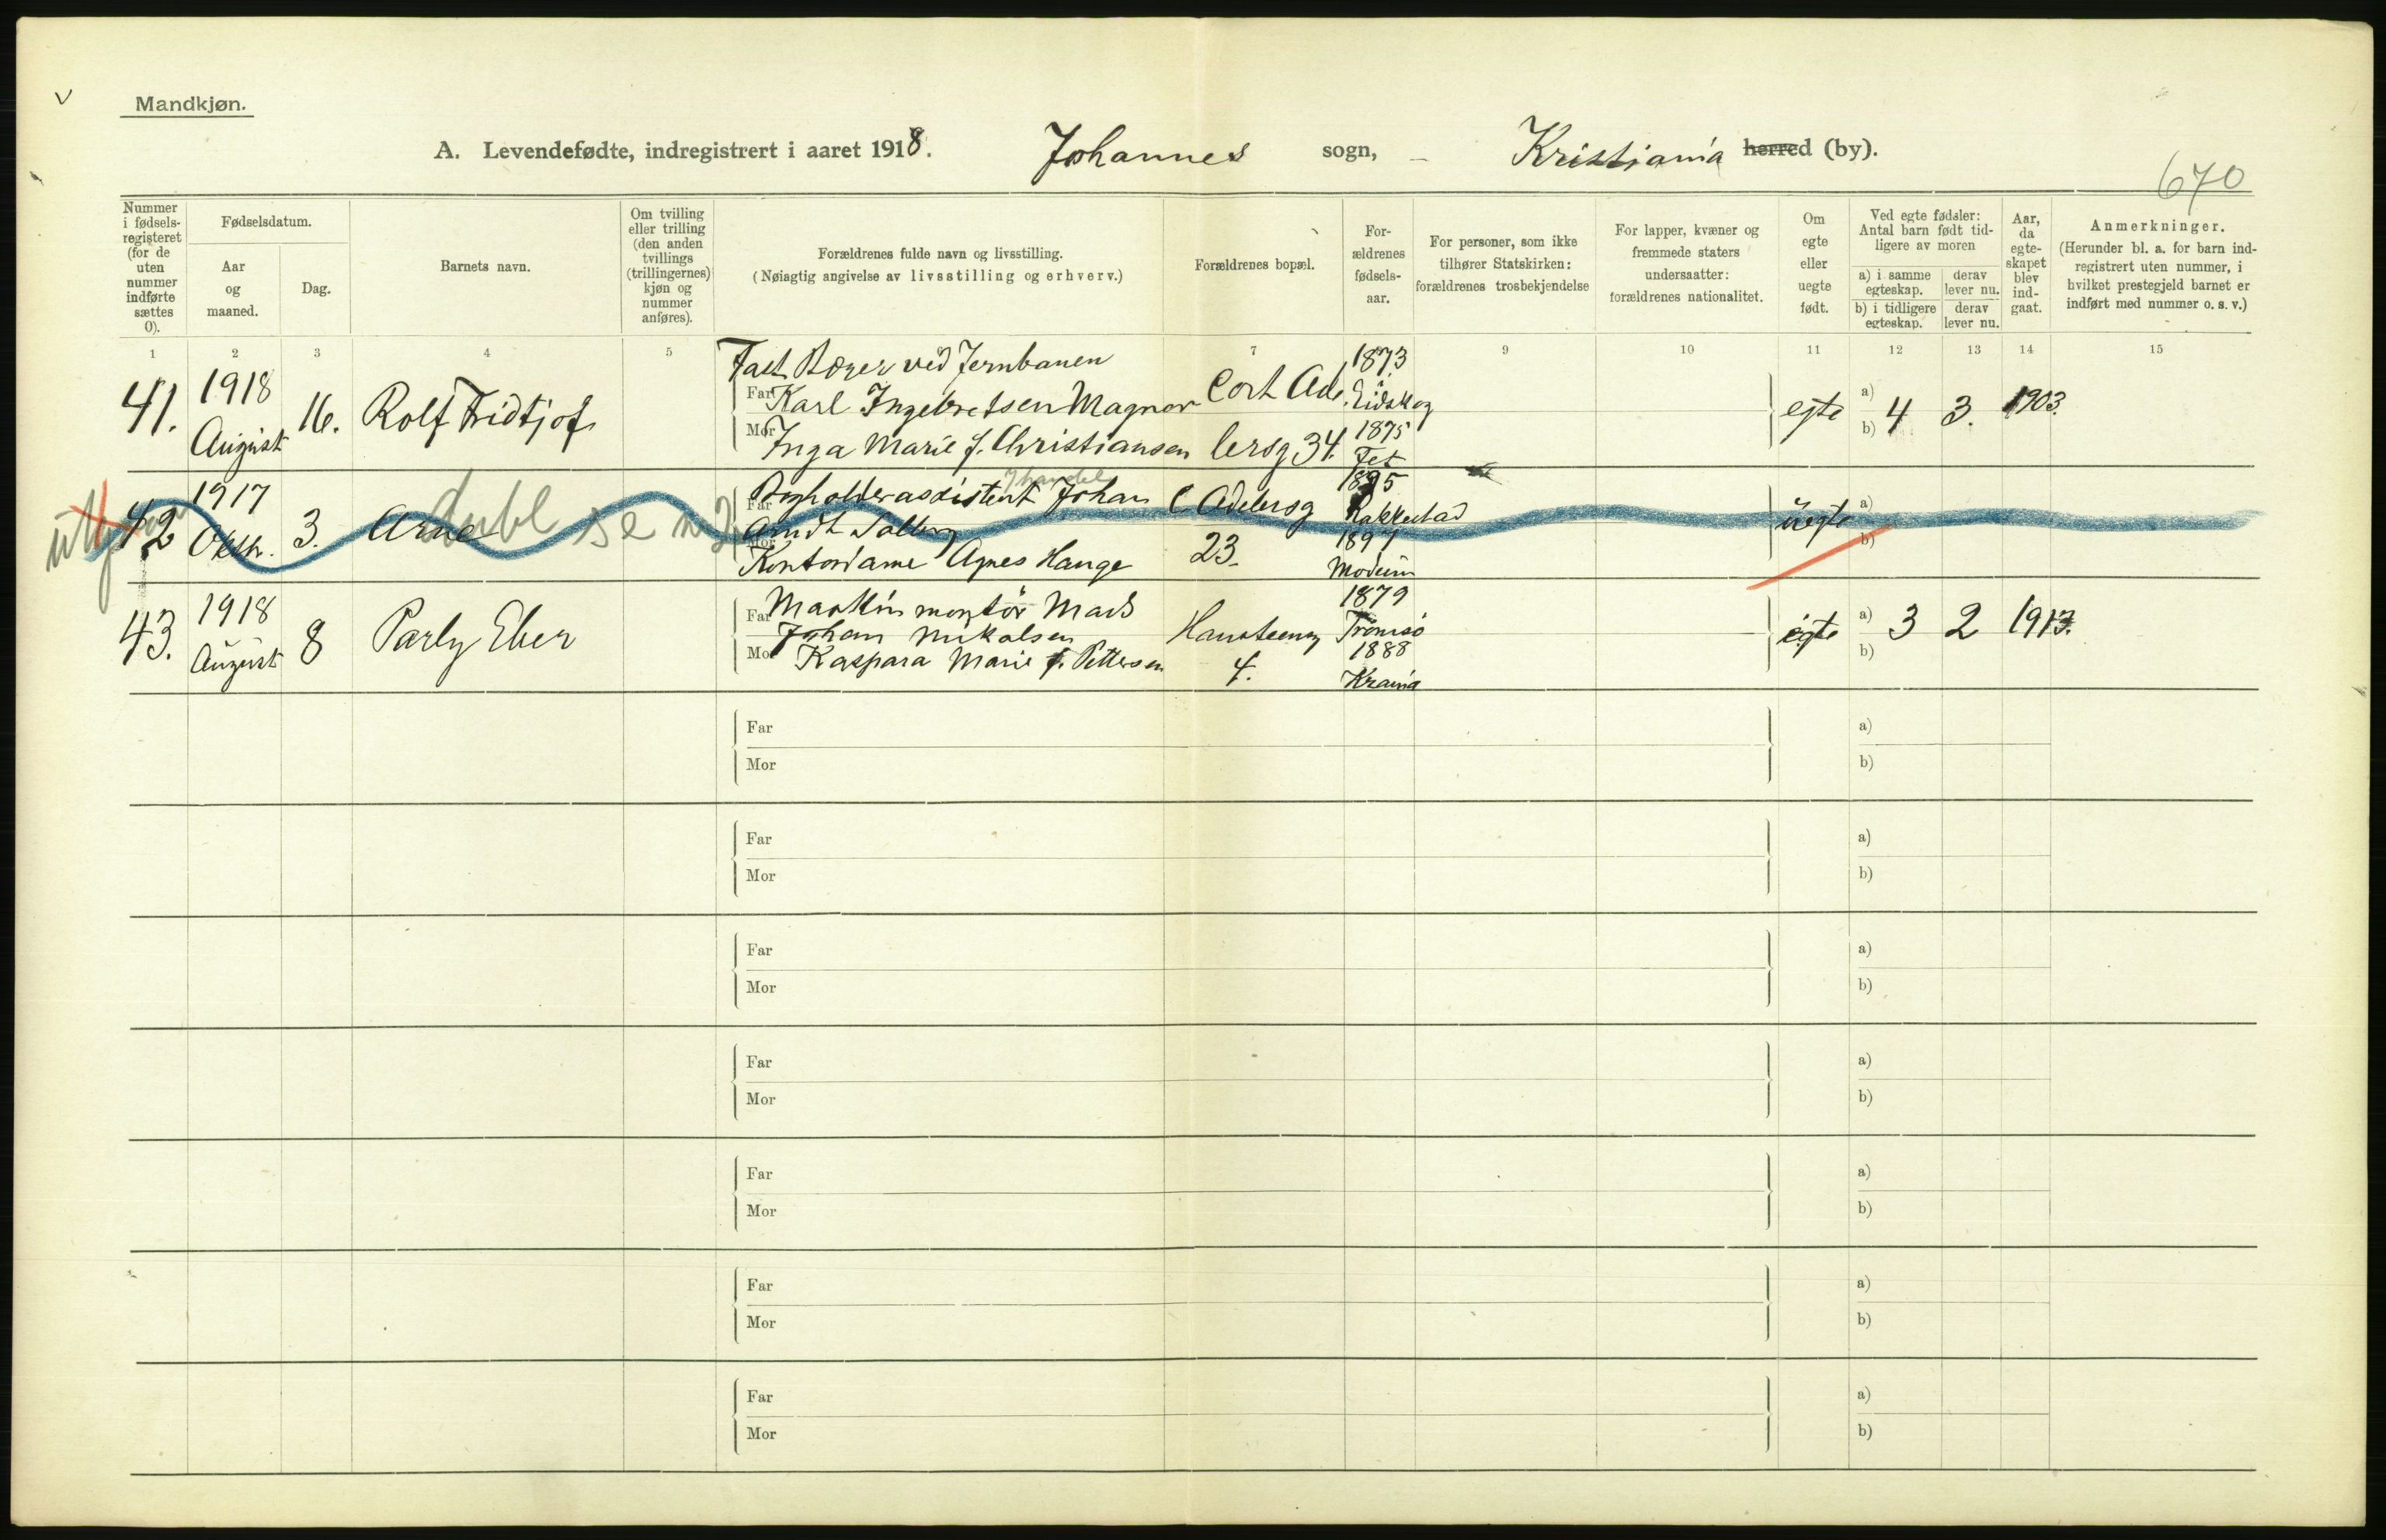 Mandkjøn.
A. Levendefødte, indregistrert i aaret 1918. Johannes sogn, Kristiania herred (by).
670
Nummer i fødsels-registeret (for de uten nummer indførte sættes 0).
Fødselsdatum.
Aar og maaned.
Dag.
Barnets navn.
Om tvilling eller trilling (den anden tvillings (trillingernes) kjøn og nummer anføres).
Forældrenes fulde navn og livsstilling.
(Nøiagtig angivelse av livsstilling og erhverv.)
Forældrenes bopæl.
For-ældrenes fødsels-aar.
For personer, som ikke tilhører Statskirken: forældrenes trosbekjendelse
For lapper, kvæner og fremmede staters undersaatter: forældrenes nationalitet.
Om egte eller uegte født.
Ved egte fødsler: Antal barn født tid-ligere av moren
a) i samme egteskap.
derav lever nu.
b) i tidligere egteskap.
derav lever nu.
Aar, da egte-skapet blev ind-gaat.
Anmerkninger.
(Herunder bl. a. for barn ind-registrert uten nummer, i hvilket prestegjeld barnet er indført med nummer o. s. v.)
1 2 3 4 5 7 9 10 11 12 13 14 15
41. 1918 August 16. Rolf Fridtjof
ved Jernbanen
Far Karl Ingebretsen Magnor
Mor Inga Marie f. Christiansen
Cort Ade
lersg 34.
1873 Eidskog
1875 Fet
egte a) b) 4 3. 1903.
42 1917 Oktbr. 3. Arne
dubl se
Bogholderassistent Johan
Far Arndt
Mor Kontordame Agnes Hauge
C. Adelersg
23.
1895 Rakkestad
1897 Modum
uegte a) b)
43. 1918 August 8 Parly Eber
Far Maskinmontør Mads
Johan Mikalsen
Mor Kaspara Marie f. Pettersen
Hansteensg
4.
1879 Tromsø
1888 Krania
egte a) b) 3 2 1913.
Far a)
Mor b)
Far a)
Mor b)
Far a)
Mor b)
Far a)
Mor b)
Far a)
Mor b)
Far a)
Mor b)
Far a)
Mor b)